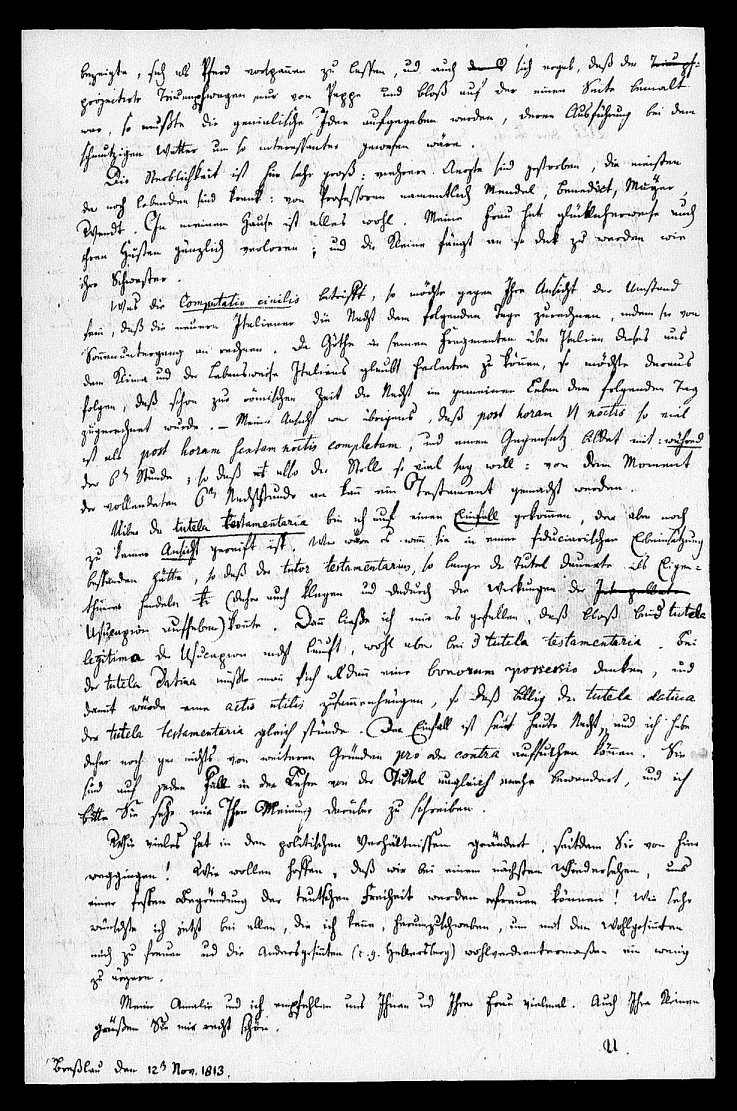 bezeigte, sich als Pferd vorspannen zu lassen, und auch sich ergab, daß der
projectirte Triumpfwagen nur von Pappe und bloß auf der einen Seite bemalt
war, so mußte die genialische Idee aufgegeben werden, deren Ausführung bei dem
schmutzigen Wetter um so interessanter gewesen wäre.
Die Sterblichkeit ist hier sehr groß: mehrere Aerzte sind gestorben, die meisten
der noch lebenden sind krank: von Professoren nammentlich Mendel, Benedict, Mayer,
Wendt. In meinem Hause ist alles wohl. Meine Frau hat glüklicherweise auch
ihren Husten gänzlich verloren; und die Kleine fängt an so dick zu werden wie
ihre Schwester.
Was die Computatio civilis betrifft, so möchte gegen Ihre Ansicht der Umstand
sein, daß die neuern Italiener die Nacht dem folgenden Tage zurechnen, indem sie von
Sonnenuntergang an rechnen. Da Göthe in seinen Fragmenten über Italien dieses aus
dem Klima und der Lebensweise Italiens glaubt herleiten zu können, so möchte daraus
folgen, daß schon zur römischen Zeit die Nacht im gemeinen Leben dem folgenden Tag
zugerechnet wurde. – Meine Ansicht war übrigens, daß post horam VI noctis so viel
ist als post horam sextam noctis completam, und einen Gegensatz bildet mit: während
der 6ten Stunde; so daß also die Stelle so viel sagen will: von dem Moment
der vollendeten 6ten Nachtstunde an kann ein Testament gemacht werden.
Ueber die tutela testamentaria bin ich auf einen Einfall gekommen, der aber noch
zu keiner Ansicht gereift ist. Wie wäre es wenn sie in einer fiduciarischen Erbeinsetzung
bestanden hätte, so daß der tutor testamentarius, so lange die Tutel dauerte als Eigen-
thümer handeln (daher auch klagen und dadurch die Wirkungen der
Usucapion aufheben) konnte. Dann ließe ich mir es gefallen, daß bloß bei d tutela
legitima die Usucapion nicht läuft, wohl aber bei d tutela testamentaria. Bei
der tutela dativa müßte man sich alsdann eine bonorum possessio denken, und
damit würde eine actio utilis zusammenhängen, so daß billig die tutela dativa
der tutela testamentaria gleich stünde. Der Einfall ist seit heute Nacht, und ich habe
daher noch gar nichts von weiteren Gründen pro oder contra aufsuchen können. Sie
sind auf jeden Fall in der Lehre von der Tutel ungleich mehr bewandert, und ich
bitte Sie sehr mir Ihre Meinung darüber zu schreiben.
Wie vieles hat in den politischen Verhältnissen geändert, seitdem Sie von hier
weggingen! Wir wollen hoffen, daß wir bei einem nächsten Wiedersehen, uns
einer festen Begründung der teutschen Freiheit werden erfreuen können! Wie sehr
wünschte ich jetzt bei allen, die ich kenne, herumzuschweben, um mit den Wohlgesinnten
mich zu freuen und die Andersgesinnten (e.g. Haltersberg) wohlverdientermaßen ein wenig
zu ärgern.
Meine Amalie und ich empfehlen uns Ihnen und Ihrer Frau vielmal. Auch Ihre Kleinen
grüßen Sie mir recht schön.
U.
Breßlau den 12t Nov. 1813.